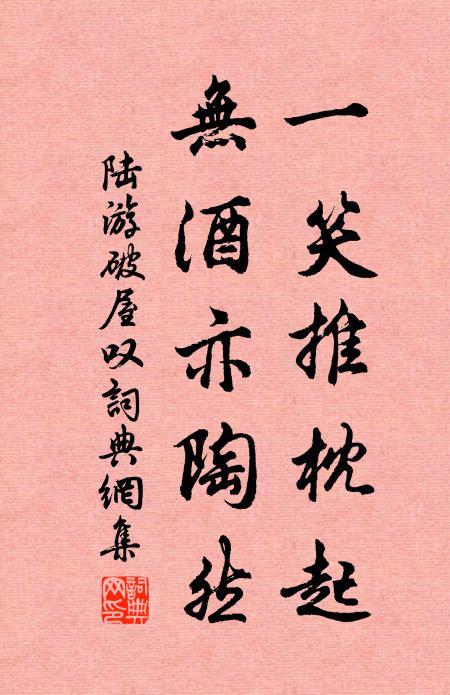 一笑推枕起
無酒亦陶然
陆游破屋叹詞典網集
詞典网印